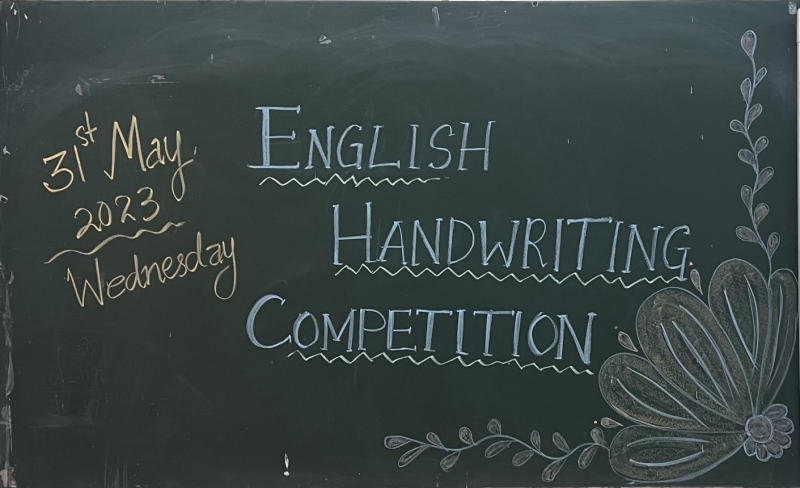 31st May,
2023
Wednesday
ENGLISH
HANDWRITING
COMPETITION